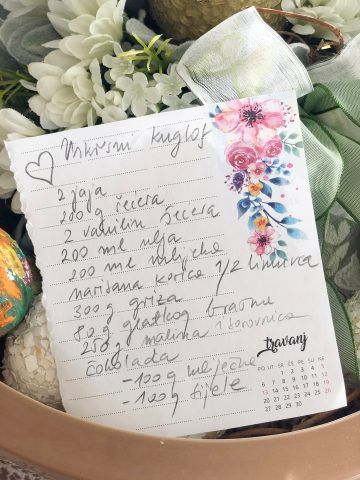 Uskrsni kuglof
2 jaja
200 g šećera
2 vanilin šećera
200 ml ulja
200 ml mlijeka
naribana korica 1/2 limuna
300 g griza
80 g glatkog brašna
250 g malina i borovnica
čokolada
-100 g mliječne
-100 g bijele
travanj
PO UT SR ČE PE SU NE
1 2 3 4 5
6 7 8 9 10 11 12
13 14 15 16 17 18 19
20 21 22 23 24 25 26
27 28 29 30